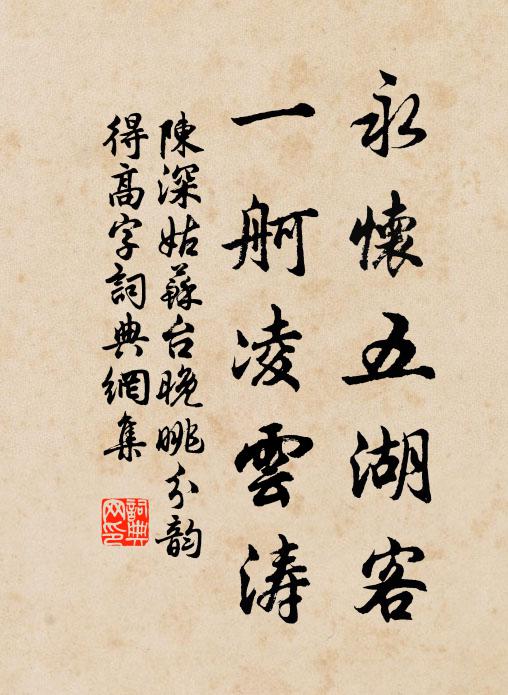 永懷五湖客
一舸凌雲濤
陳深姑蘇台晚眺分韵
得高字詞典網集
詞典網印